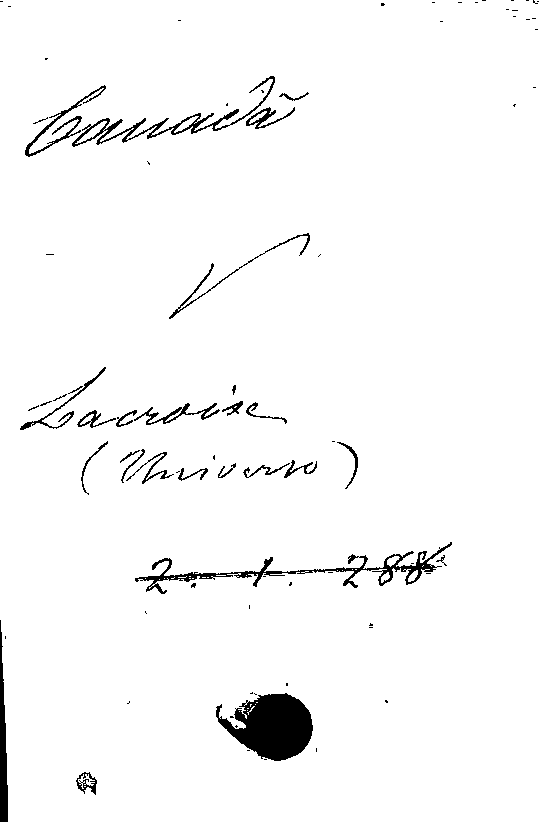 Canadá
V
Lacroix
(Universo)
2. 1. 288